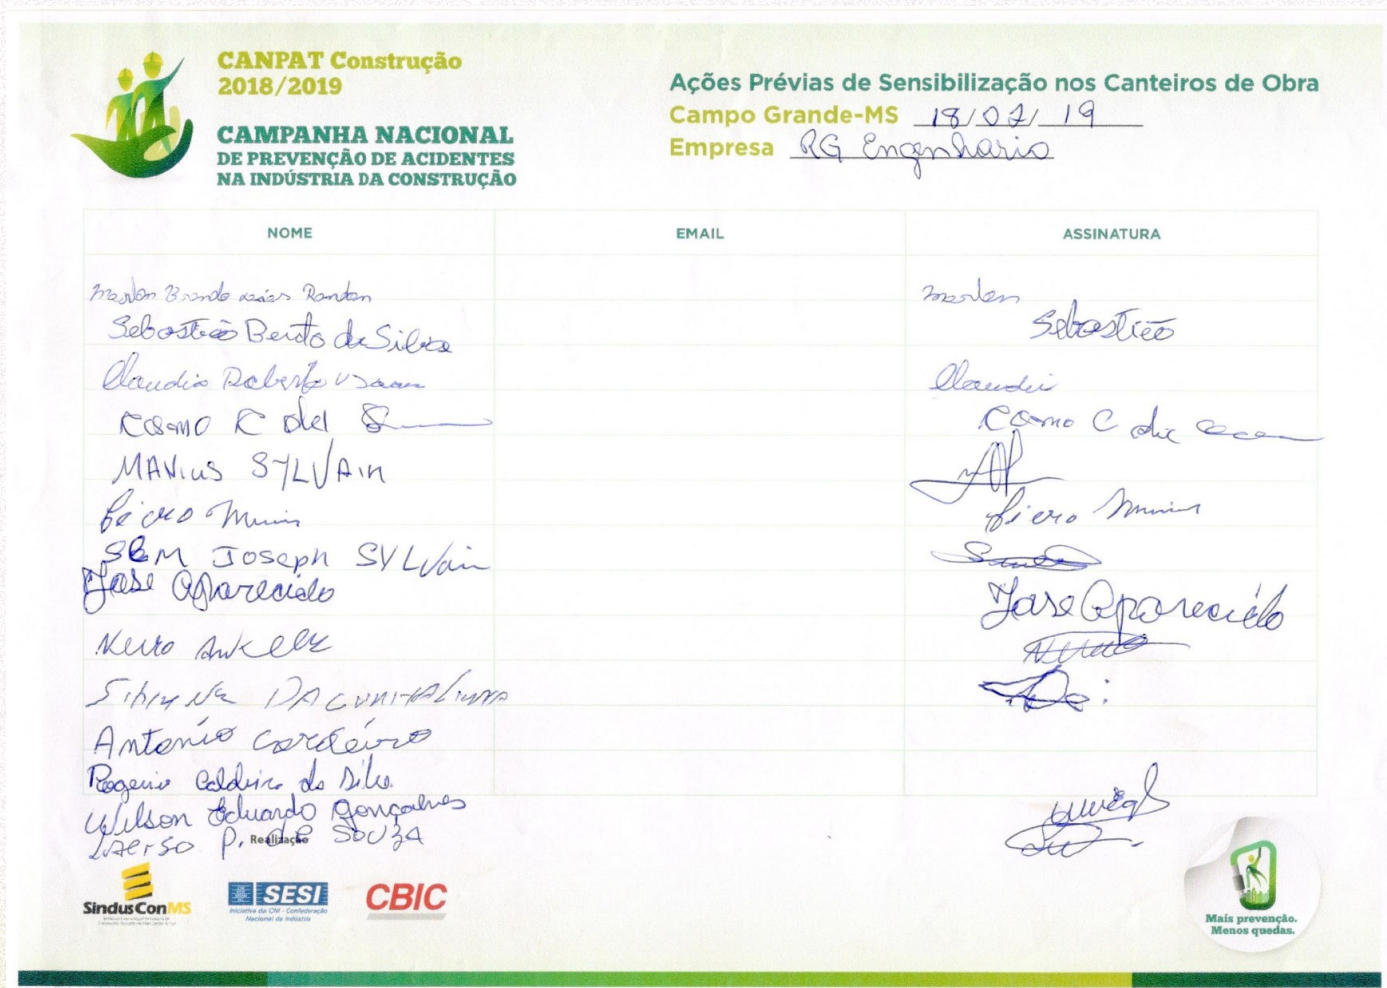 CANPAT Construção
2018/2019
CAMPANHA NACIONAL
DE PREVENÇÃO DE ACIDENTES
NA INDÚSTRIA DA CONSTRUÇÃO
Ações Prévias de Sensibilização nos Canteiros de Obra
Campo Grande-MS 18/07/19
Empresa RG Engenharia
NOME EMAIL ASSINATURA
Marlon Brando Rondon Marlon
Sebastião Bento da Silva Sebastião
Claudio Roberto Claudio
Cosmo C Cosmo C
MAVIUS SYLVAIN
Cicero Muniz Cicero Muniz
SEM JOSEPH SYLVain
Jose Aparecido Jose Aparecido
DA CUNHA LIMA
Antonio Cordeiro
Rogerio Caldeira da Silva
Wilson Eduardo Gonçalves
Laerso P. de SOUZA
Realização
SindusConMS
SESI
Iniciativa da CNI - Confederação
Nacional da Indústria
CBIC
Mais prevenção.
Menos quedas.